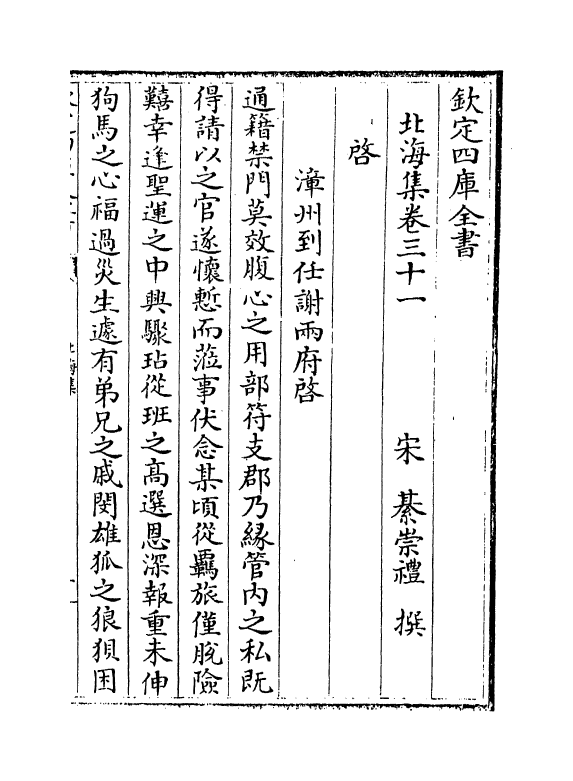 欽定四庫全書
北海集卷三十一
宋 綦崇禮 撰
啓
漳州到任謝兩府啓
通籍禁門莫效腹心之用部符支郡乃緣管内之私既
得請以之官遂懷慙而蒞事伏念某頃從羇旅僅脫險
囏幸逢聖運之中興驟玷從班之高選恩深報重未伸
狗馬之心福過災生遽有弟兄之戚閔雄狐之狼狽困
北海集